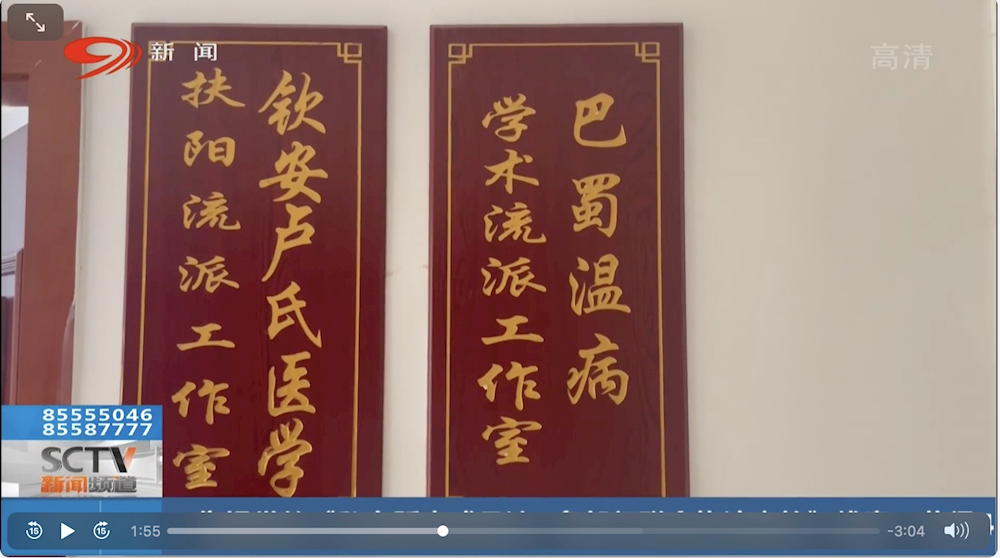 新闻
高清
钦安卢氏医学
扶阳流派工作室
巴蜀温病
学术流派工作室
85555046
85587777
SCTV
新闻频道
15
15
1:55
-3:04